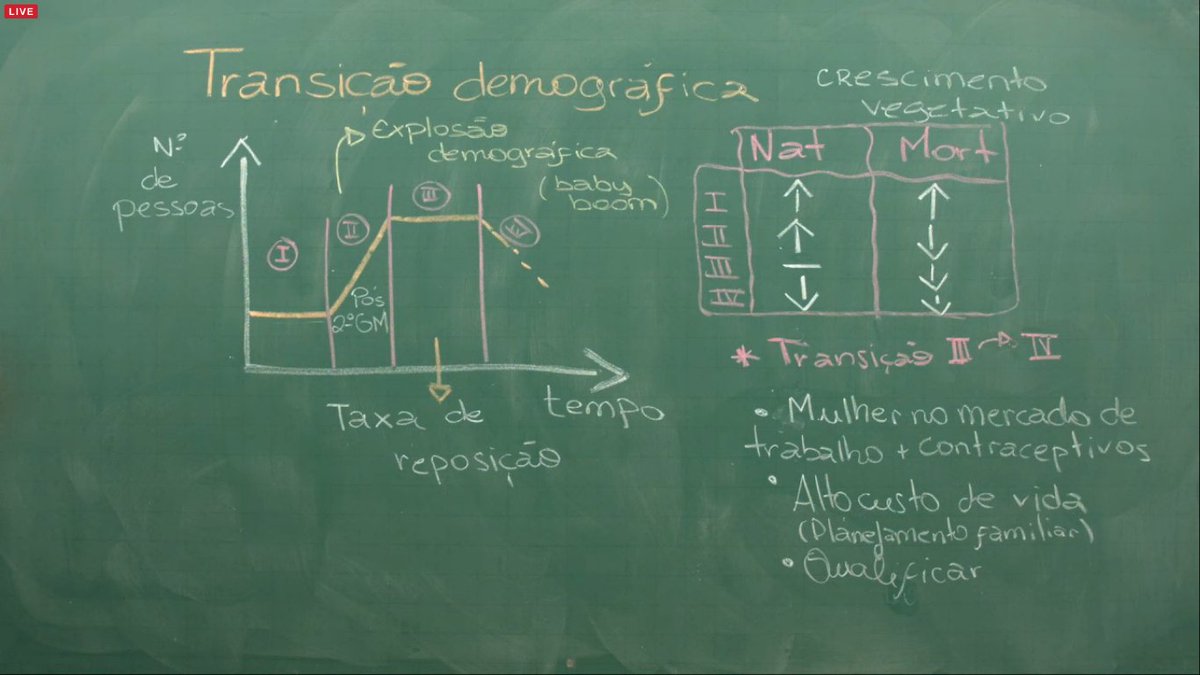 LIVE
Transição demográfica
Explosão
demográfica
(baby
boom)
N.º
de
pessoas
I
II
III
IV
Pós
2ºGM
tempo
Taxa de
reposição
crescimento
vegetativo
Nat Mort
I ↑ ↑
II ↑ ↓
III – ↓
IV ↓ ↓
* Transição III → IV
• Mulher no mercado de
trabalho + contraceptivos
• Alto custo de vida
(Planejamento familiar)
• Qualificar